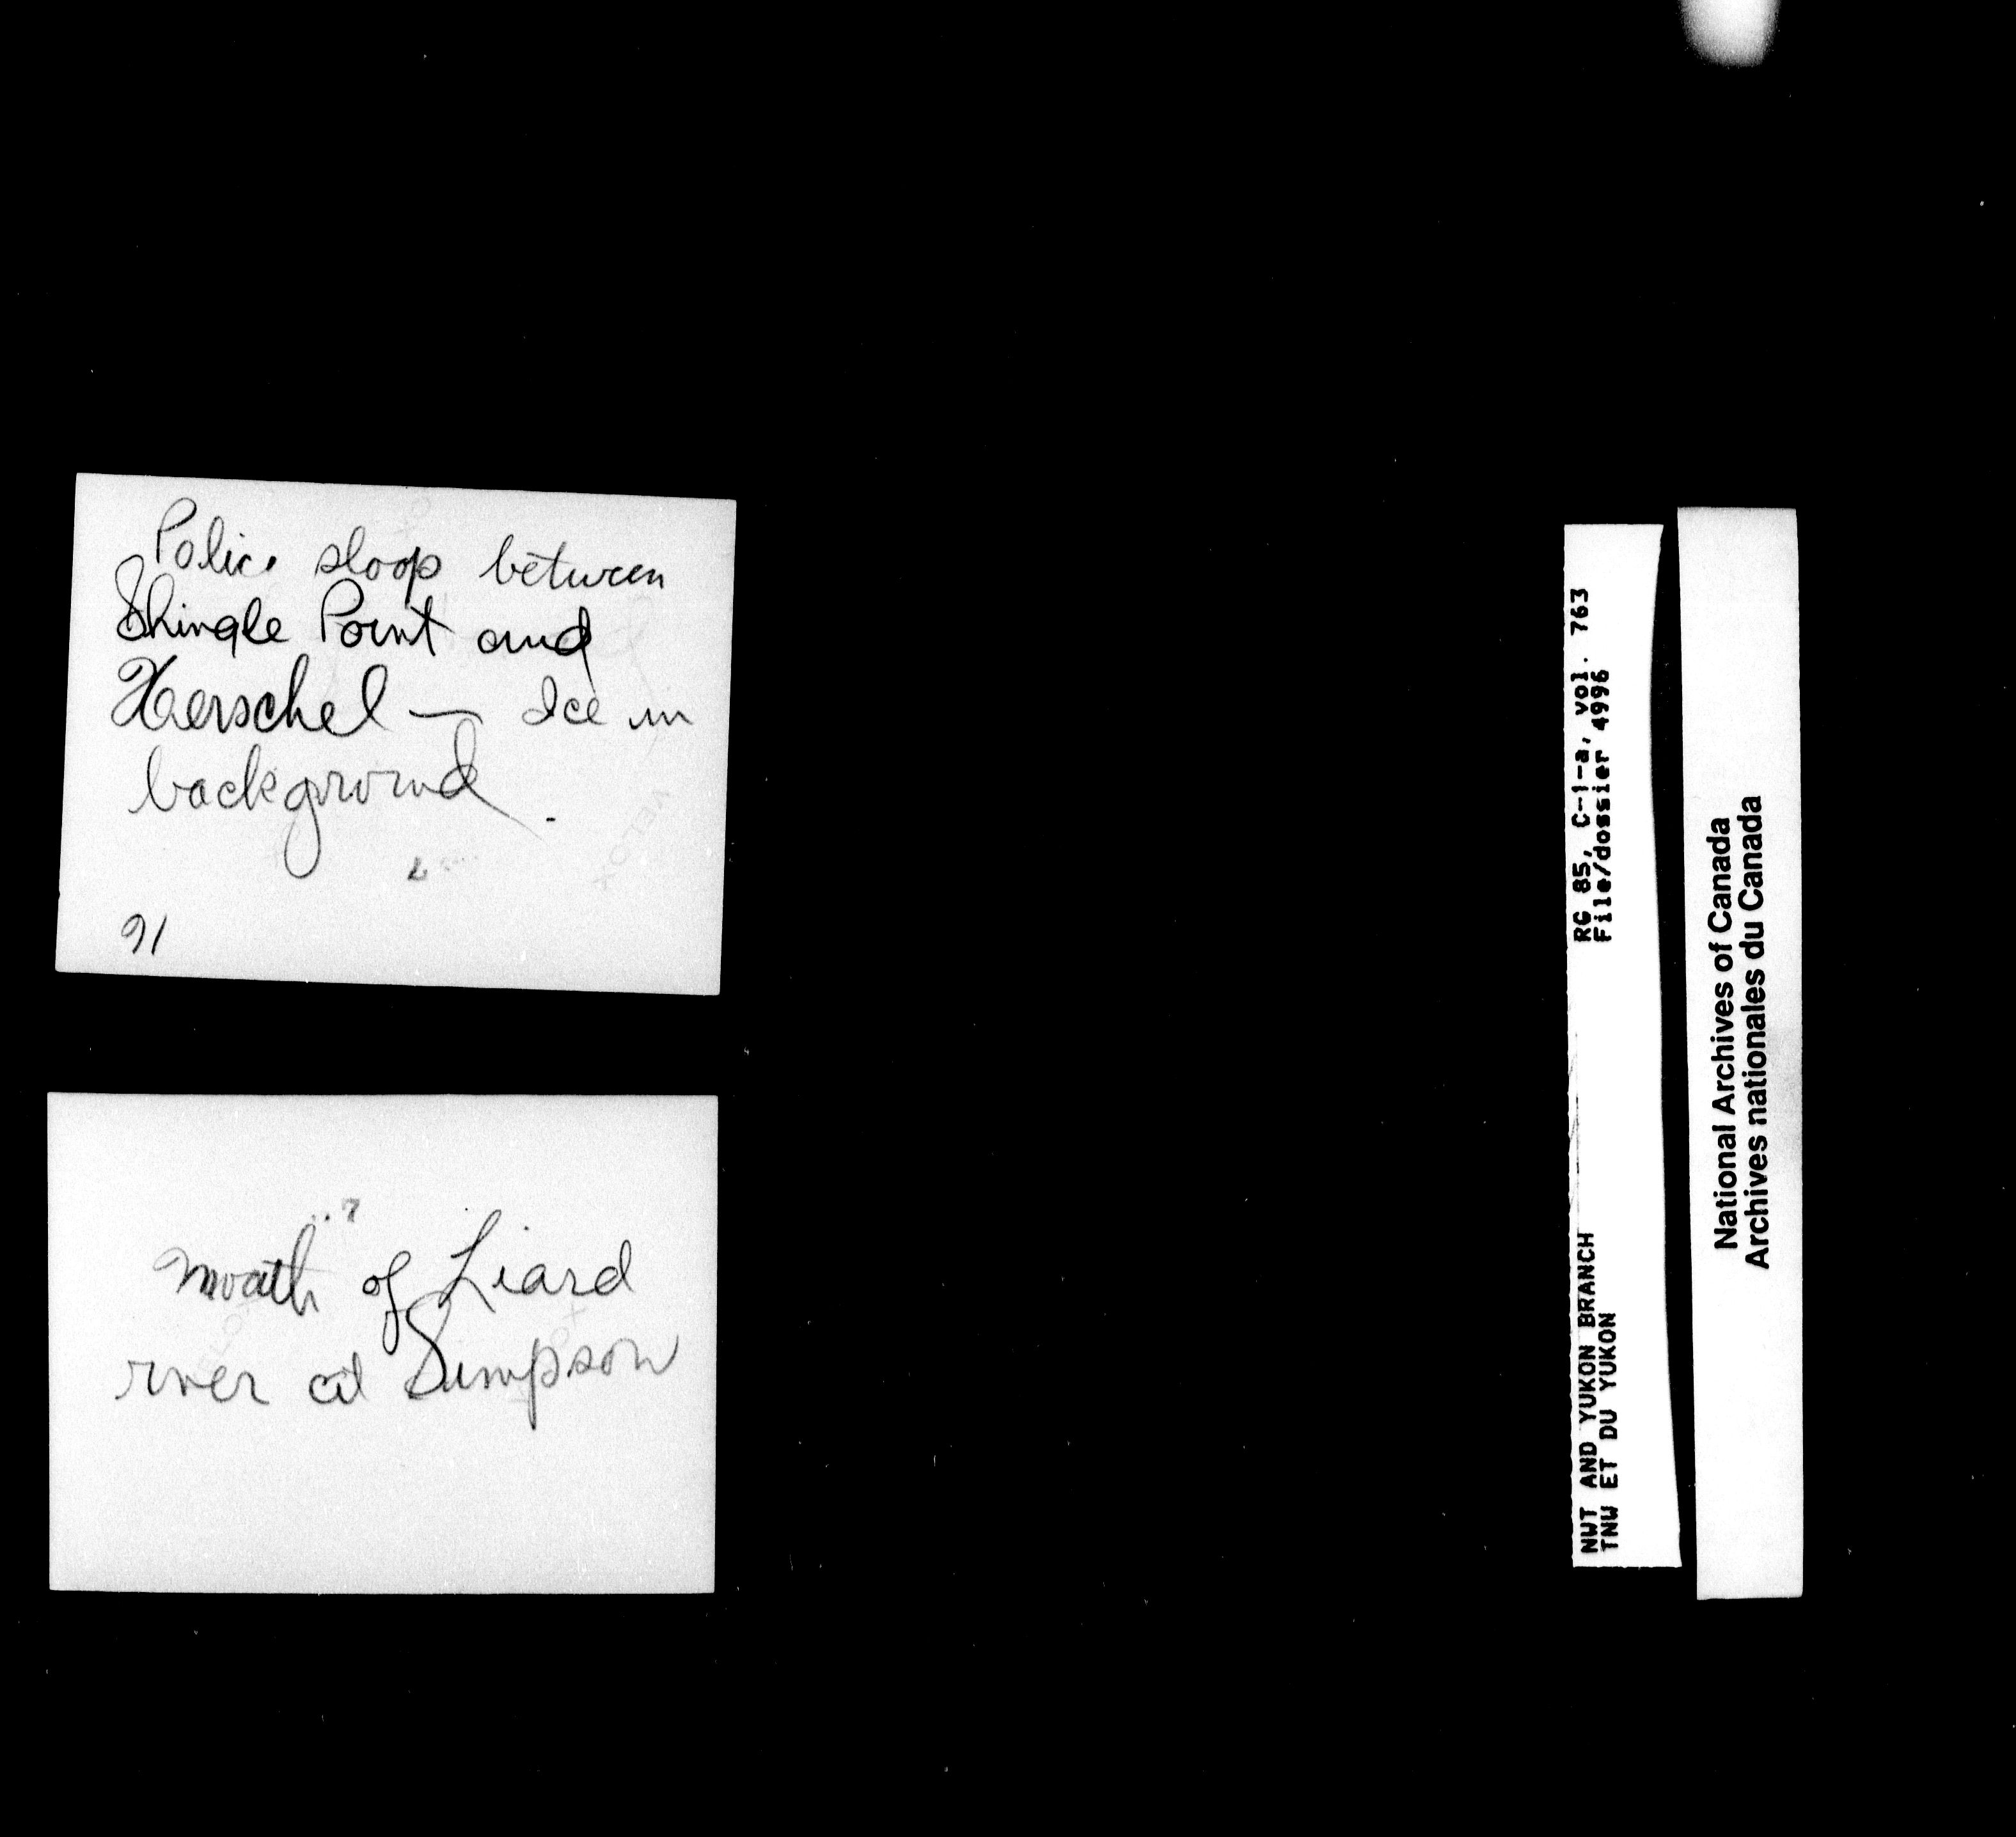 Police sloop between
Shingle Point and
Herschel — Ice in
background.
91
mouth of Liard
river at Simpson
RG 85, C-1-a, vol. 763
File/dossier 4996
NWT AND YUKON BRANCH
TNW ET DU YUKON
National Archives of Canada
Archives nationales du Canada